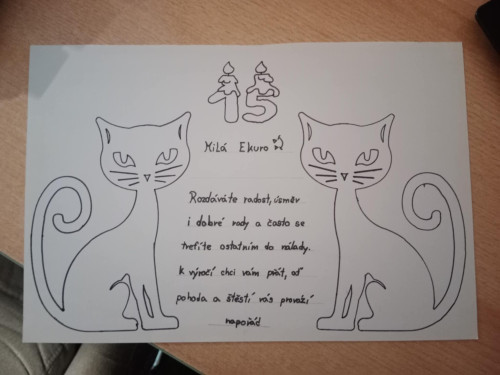 15
Milá Ekuro
Rozdáváte radost, úsměv
i dobré rady a často se
trefíte ostatním do nálady.
K výročí chci vám přát, ať
pohoda a štěstí vás provází
napořád